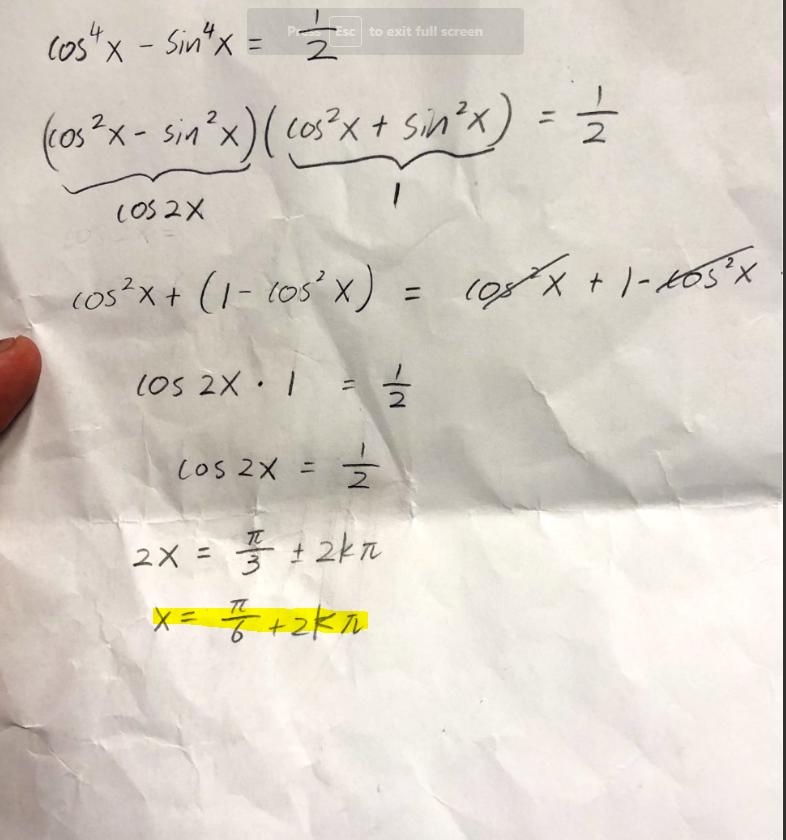 Press Esc to exit full screen
cos⁴x - sin⁴x = 1/2
(cos²x - sin²x)(cos²x + sin²x) = 1/2
cos2x 1
cos²x + (1 - cos²x) = cos²x + 1 - cos²x
cos 2x · 1 = 1/2
cos 2x = 1/2
2x = π/3 ± 2kπ
x = π/6 + 2kπ